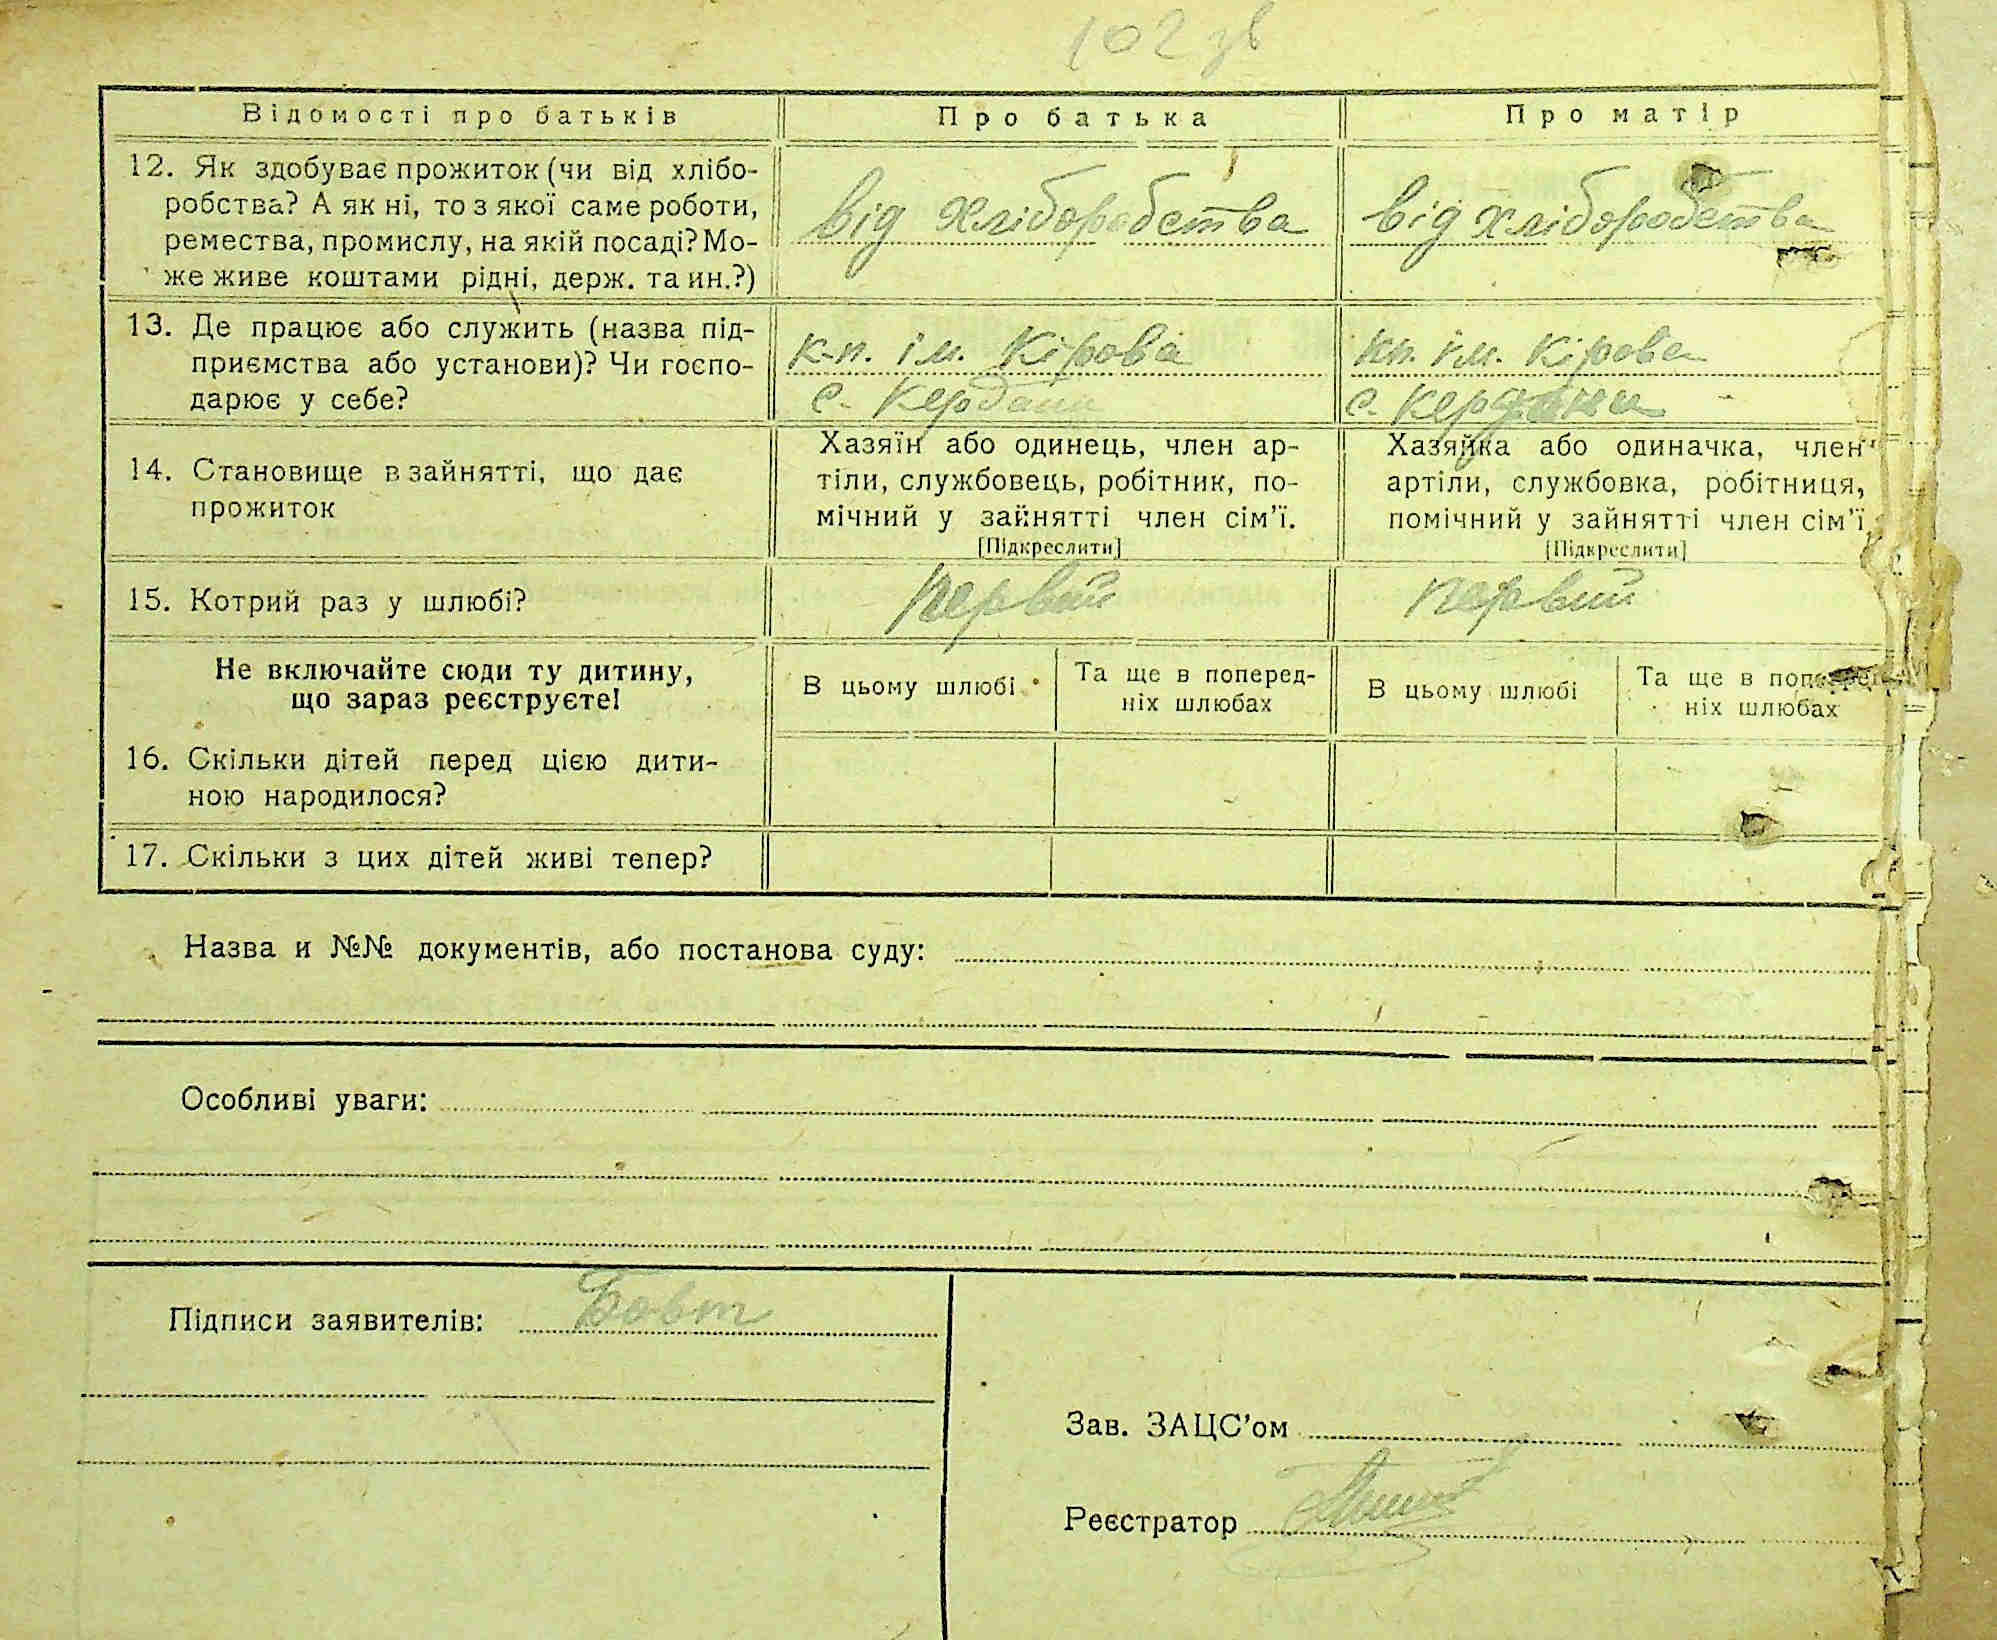 102 зв
Відомості про батьків
Про батька
Про матір
12. Як здобуває прожиток (чи від хлібо-
робства? А як ні, то з якої саме роботи,
ремества, промислу, на якій посаді? Мо-
же живе коштами рідні, держ. та ин.?)
від хліборобства
від хліборобства
13. Де працює або служить (назва під-
приємства або установи)? Чи госпо-
дарює у себе?
к-п. ім. Кірова
с. Кердани
кп. ім. Кірова
с. Кердани
14. Становище в зайнятті, що дає
прожиток
Хазяїн або одинець, член ар-
тіли, службовець, робітник, по-
мічний у зайнятті член сім’ї.
[Підкреслити]
Хазяйка або одиначка, член
артіли, службовка, робітниця,
помічний у зайнятті член сім’ї
[Підкреслити]
15. Котрий раз у шлюбі?
первий
первий
Не включайте сюди ту дитину,
що зараз реєструєте!
В цьому шлюбі
Та ще в поперед-
ніх шлюбах
В цьому шлюбі
Та ще в поперед-
ніх шлюбах
16. Скільки дітей перед цією дити-
ною народилося?
17. Скільки з цих дітей живі тепер?
Назва и №№ документів, або постанова суду:
Особливі уваги:
Підписи заявителів: Бовт
Зав. ЗАЦС’ом
Реєстратор